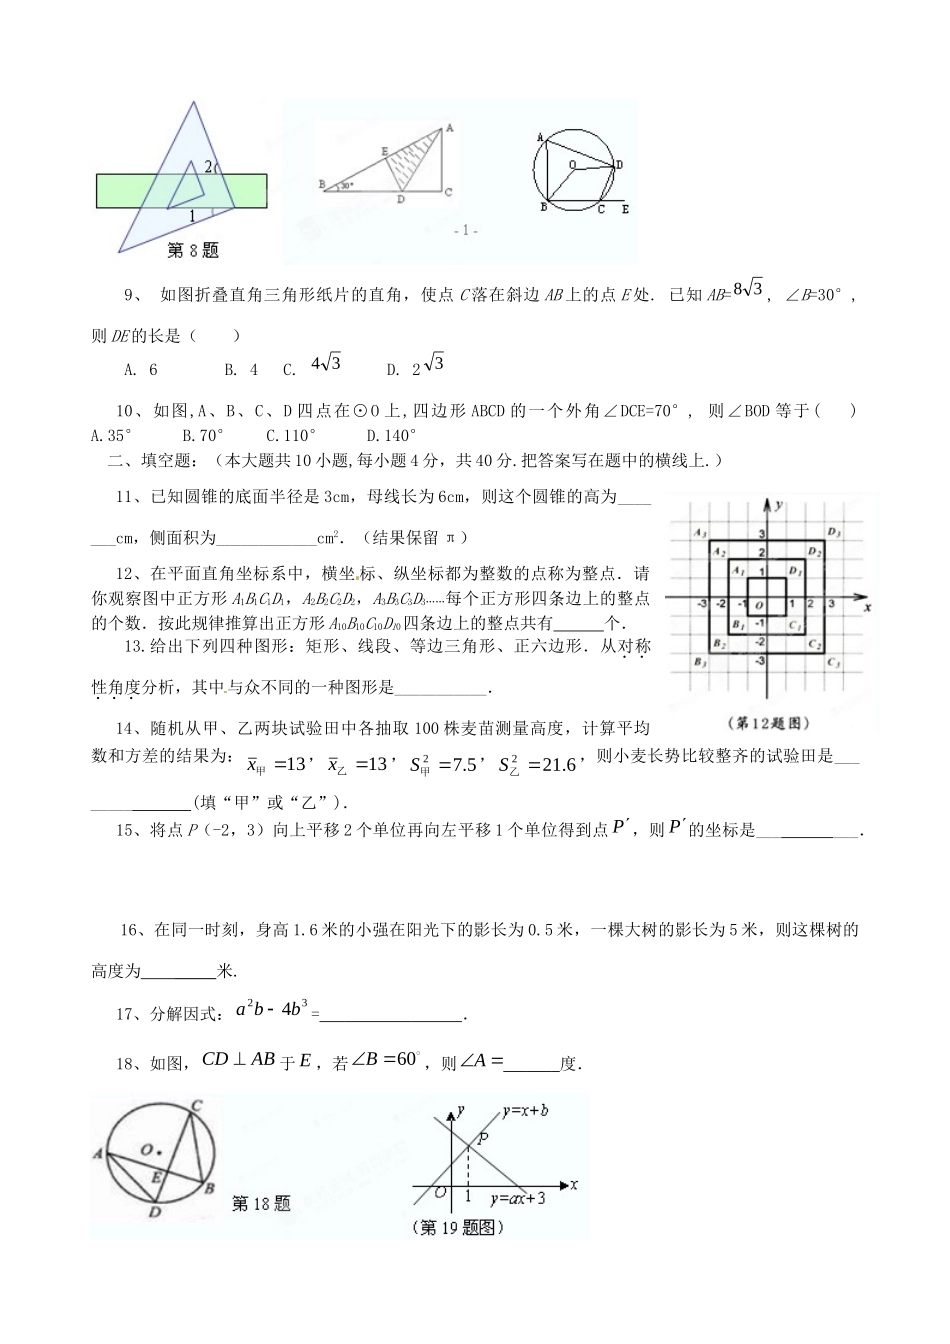 2
1
第 8 题
A
E
B 30° D C
A
O D
B C E
- 1 -
9、 如图折叠直角三角形纸片的直角，使点 C 落在斜边 AB 上的点 E 处．已知 AB=8√3 , ∠B=30°,
则 DE 的长是（ ）
A. 6 B. 4 C. 4√3 D. 2√3
10、如图,A、B、C、D 四点在⊙O 上,四边形 ABCD 的一个外角∠DCE=70°, 则∠BOD 等于( )
A.35° B.70° C.110° D.140°
二、填空题：（本大题共 10 小题,每小题 4 分，共 40 分.把答案写在题中的横线上.）
11、已知圆锥的底面半径是 3cm，母线长为 6cm，则这个圆锥的高为____
___cm，侧面积为____________cm²．（结果保留 π）
12、在平面直角坐标系中，横坐标、纵坐标都为整数的点称为整点．请
你观察图中正方形 A₁B₁C₁D₁，A₂B₂C₂D₂，A₃B₃C₃D₃……每个正方形四条边上的整点
的个数．按此规律推算出正方形 A₁₀B₁₀C₁₀D₁₀四条边上的整点共有______个．
13.给出下列四种图形：矩形、线段、等边三角形、正六边形．从对称
性角度分析，其中与众不同的一种图形是___________．
y
A₃ 3 D₃
A₂ 2 D₂
A₁ 1 D₁
-3 -2 -1 O 1 2 3 x
B₁ -1 C₁
B₂ -2 C₂
B₃ -3 C₃
(第12题图)
14、随机从甲、乙两块试验田中各抽取 100 株麦苗测量高度，计算平均
数和方差的结果为：x̄甲=13，x̄乙=13，S²甲=7.5，S²乙=21.6，则小麦长势比较整齐的试验田是___
____________(填“甲”或“乙”)．
15、将点 P（-2，3）向上平移 2 个单位再向左平移 1 个单位得到点 P′，则 P′的坐标是____________．
16、在同一时刻，身高 1.6 米的小强在阳光下的影长为 0.5 米，一棵大树的影长为 5 米，则这棵树的
高度为_________米.
17、分解因式：a²b - 4b³=_________________．
18、如图，CD ⊥ AB 于 E，若∠B=60°，则∠A=_______度．
C
A O
E
B
D
第 18 题
y y=x+b
P
O 1 x
y=ax+3
(第 19 题图)